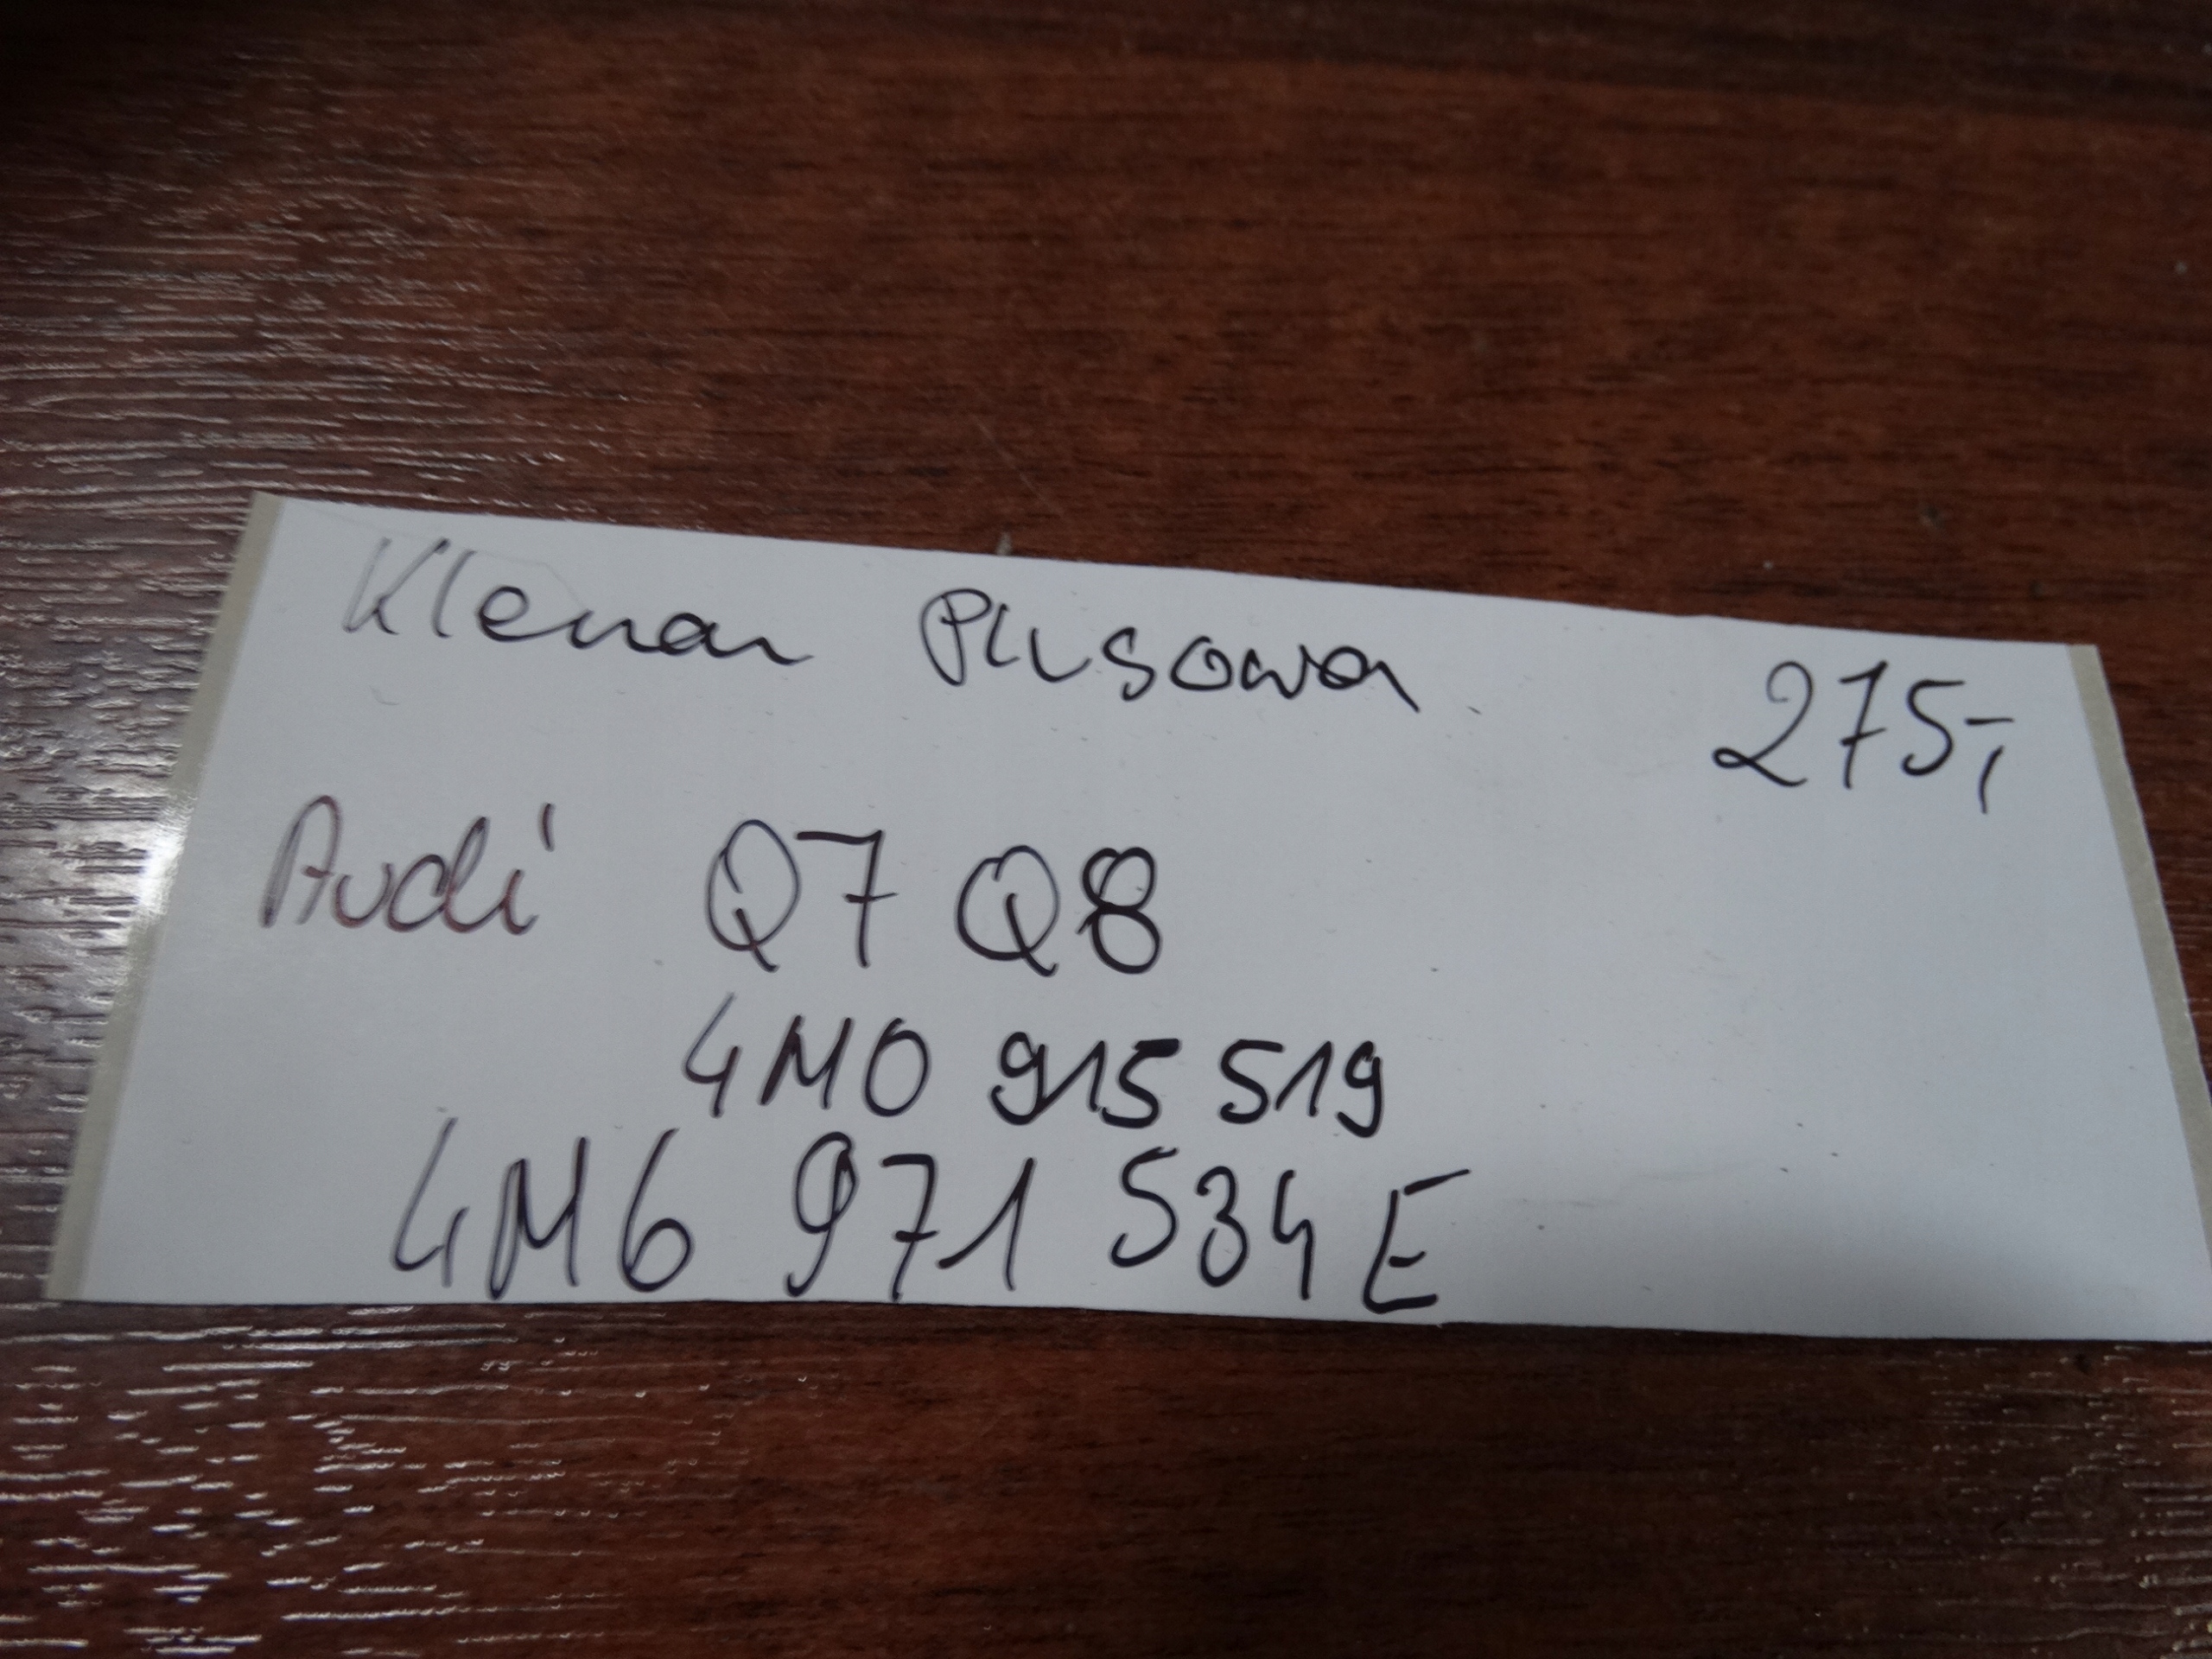 Klema Plusowa
275,-
Audi Q7 Q8
4M0 915 519
4M6 971 534 E